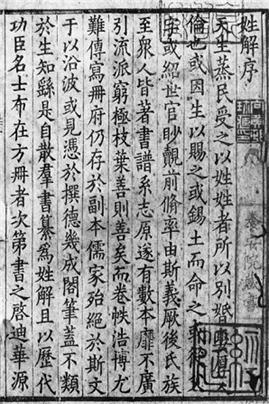 姓解序
天生蒸民受之以姓姓者所以別婚
倫也或因生以賜之或錫土而命之
字或紹世官眇覿前脩率由斯義厥後氏族
至衆人皆著書譜系志原遂有數本靡不廣
引流派窮極枝葉善則善矣而卷帙浩博尤
難傳寫冊府仍存於副本儒家殆絶於斯文
于以沿波或見憑於撰德幾成閣筆蓋不類
於生知繇是自散羣書纂爲姓解且以歷代
功臣名士布在方冊者次第書之啓迪華源